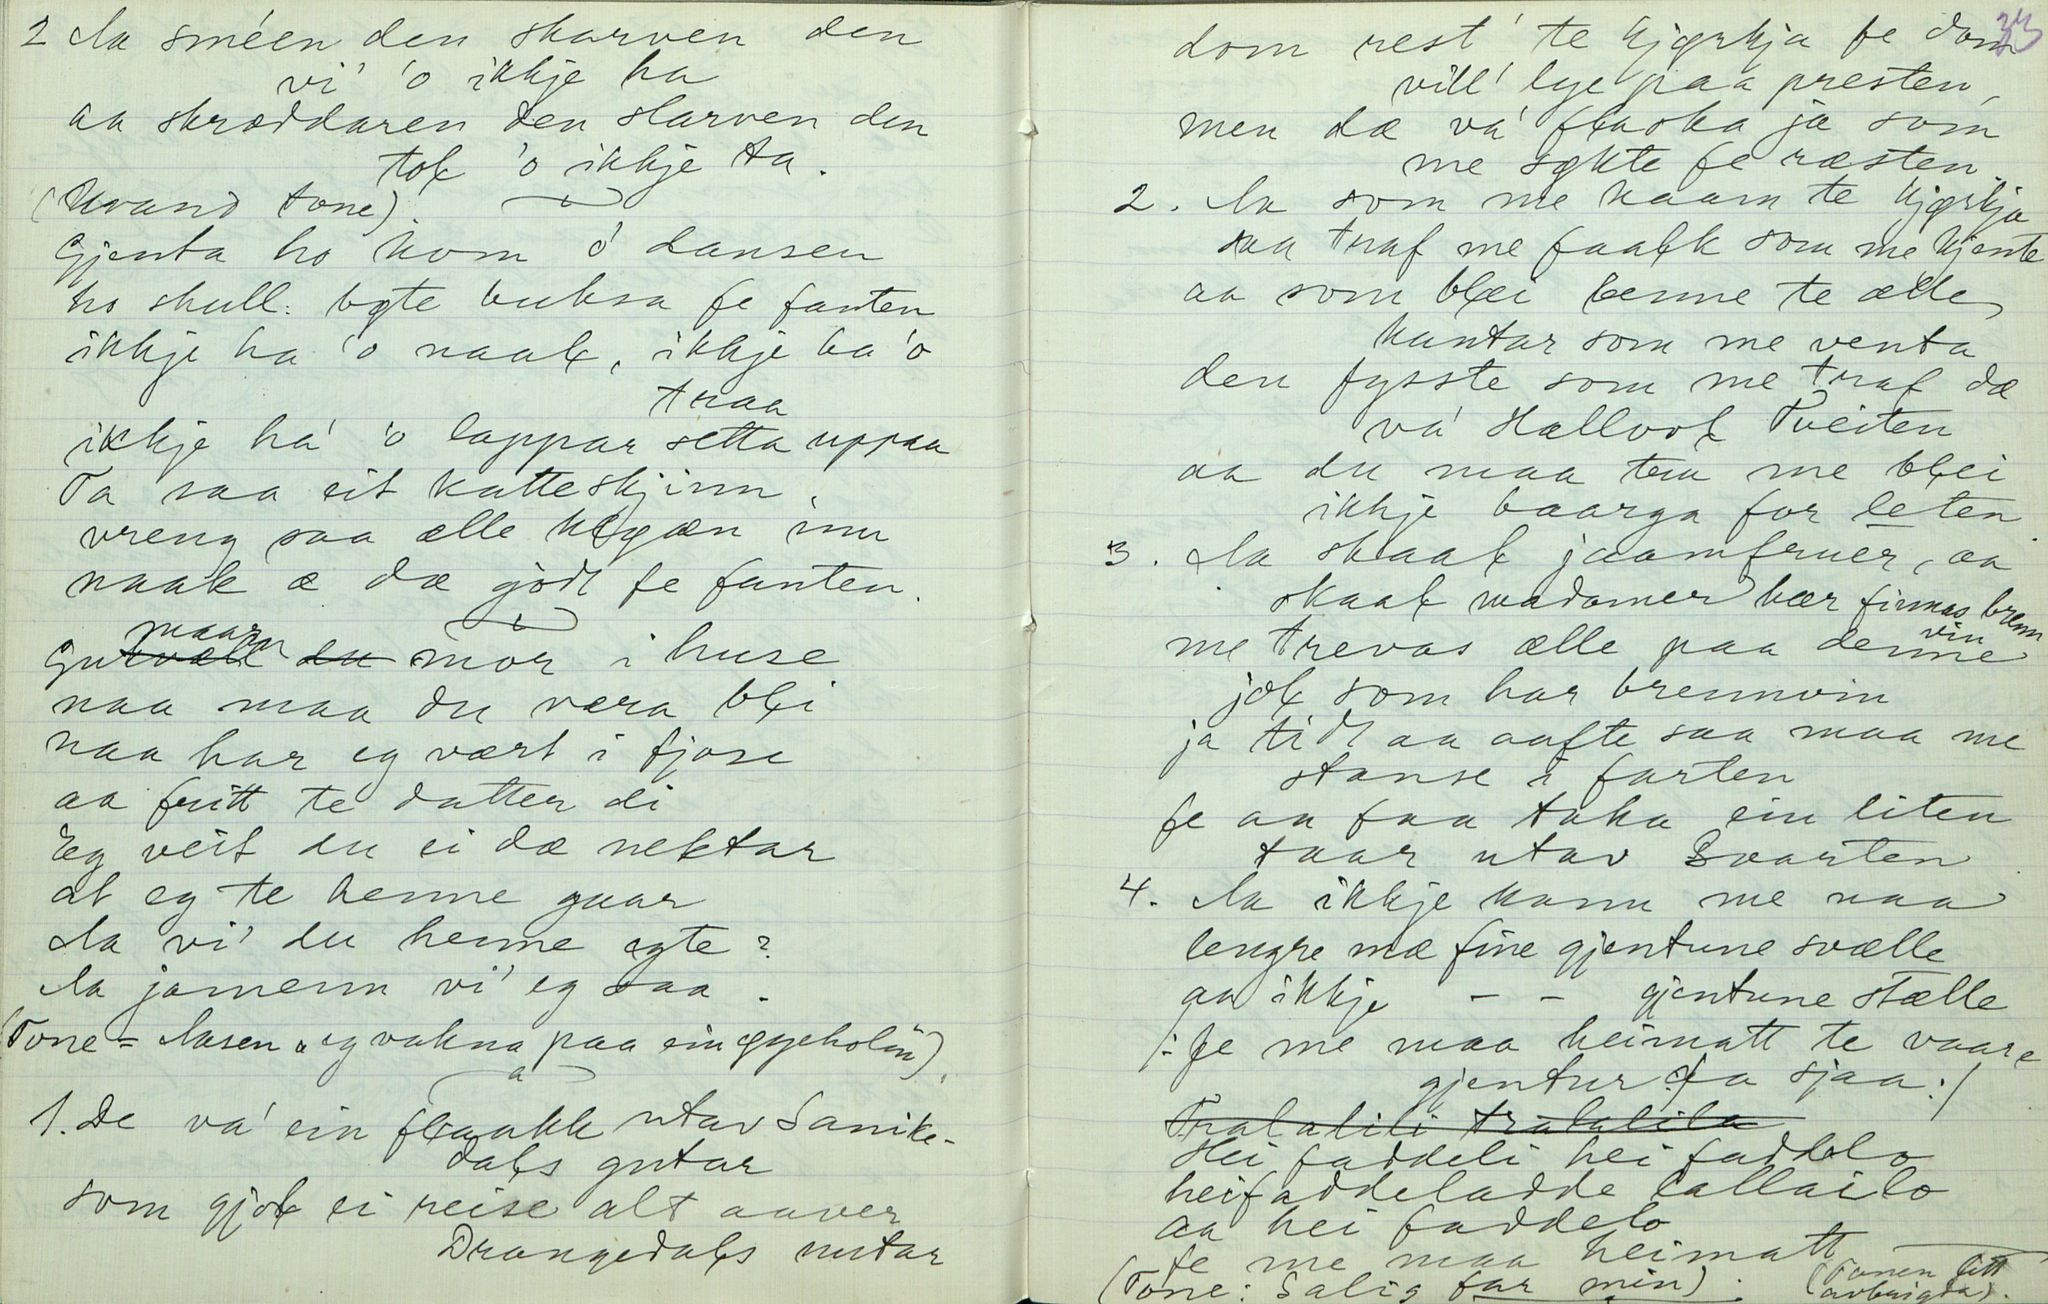 2 Aa sméen den skarven den
vi' 'o ikkje ha
aa skræddaren den slarven den
tol 'o ikkje ta.
(Kvand tone).
Gjenta ho kom ó dansen
ho skull: bøte buksa fe fanten
ikkje ha 'o naal, ikkje ha 'o
traa
ikkje há 'o lappar setta uppaa
Ta saa eit katteskjinn,
vreng saa ælle klǫæn inn
naak æ dæ godt fe fanten.
Gumaarn mor i huse
naa maa du væra bli
naa har eg vært i fjøse
aa fritt te datter di
Eg veit du ei dæ nektar
at eg te henne gaar
Aa vi' du henne egte?
Aa jamenn vi' eg saa.
(Tone = Aasen eg vakna paa ein øyeholm).
1. De va' ein flaakk utav Sanike-
dals gutar
som gjol ei reise alt aaver
Drangedals nutar
33
dom rest' te kjørkja fe dom
vill' lye paa presten,
men dæ va' flaska ja som
me søkte fe ræsten
2. Aa som me kaam te kjørkja
saa traf me faalk som me kjente
aa som blei benne te ælle
kantar som me venta
den fysste som me traf dæ
va' Hallvol Tveiten
aa du maa tru me blei
ikkje baarga for leten
3. Aa skaal jaamfruer, aa
skaal madamer hær finnas brenn
vin
me trevas ælle paa denne
jol som har brennvin
ja tidt aa aafte saa maa me
stanse i farten
fe aa faa taka ein liten
taar utav Svarten
4. Aa ikkje kann me naa
lengre mæ fine gjentune svælle
aa ikkje - - gjentune stælle
/: fe me maa heimatt te vaare
gjentur fa sjaa :/
Tralalili tralalila
Hei faddeli hei faddelo
heifaddeladde lallailo
aa hei faddelo
fe me maa heimatt
(Tone: Salig far min). (Tonen litt
avbrigda).